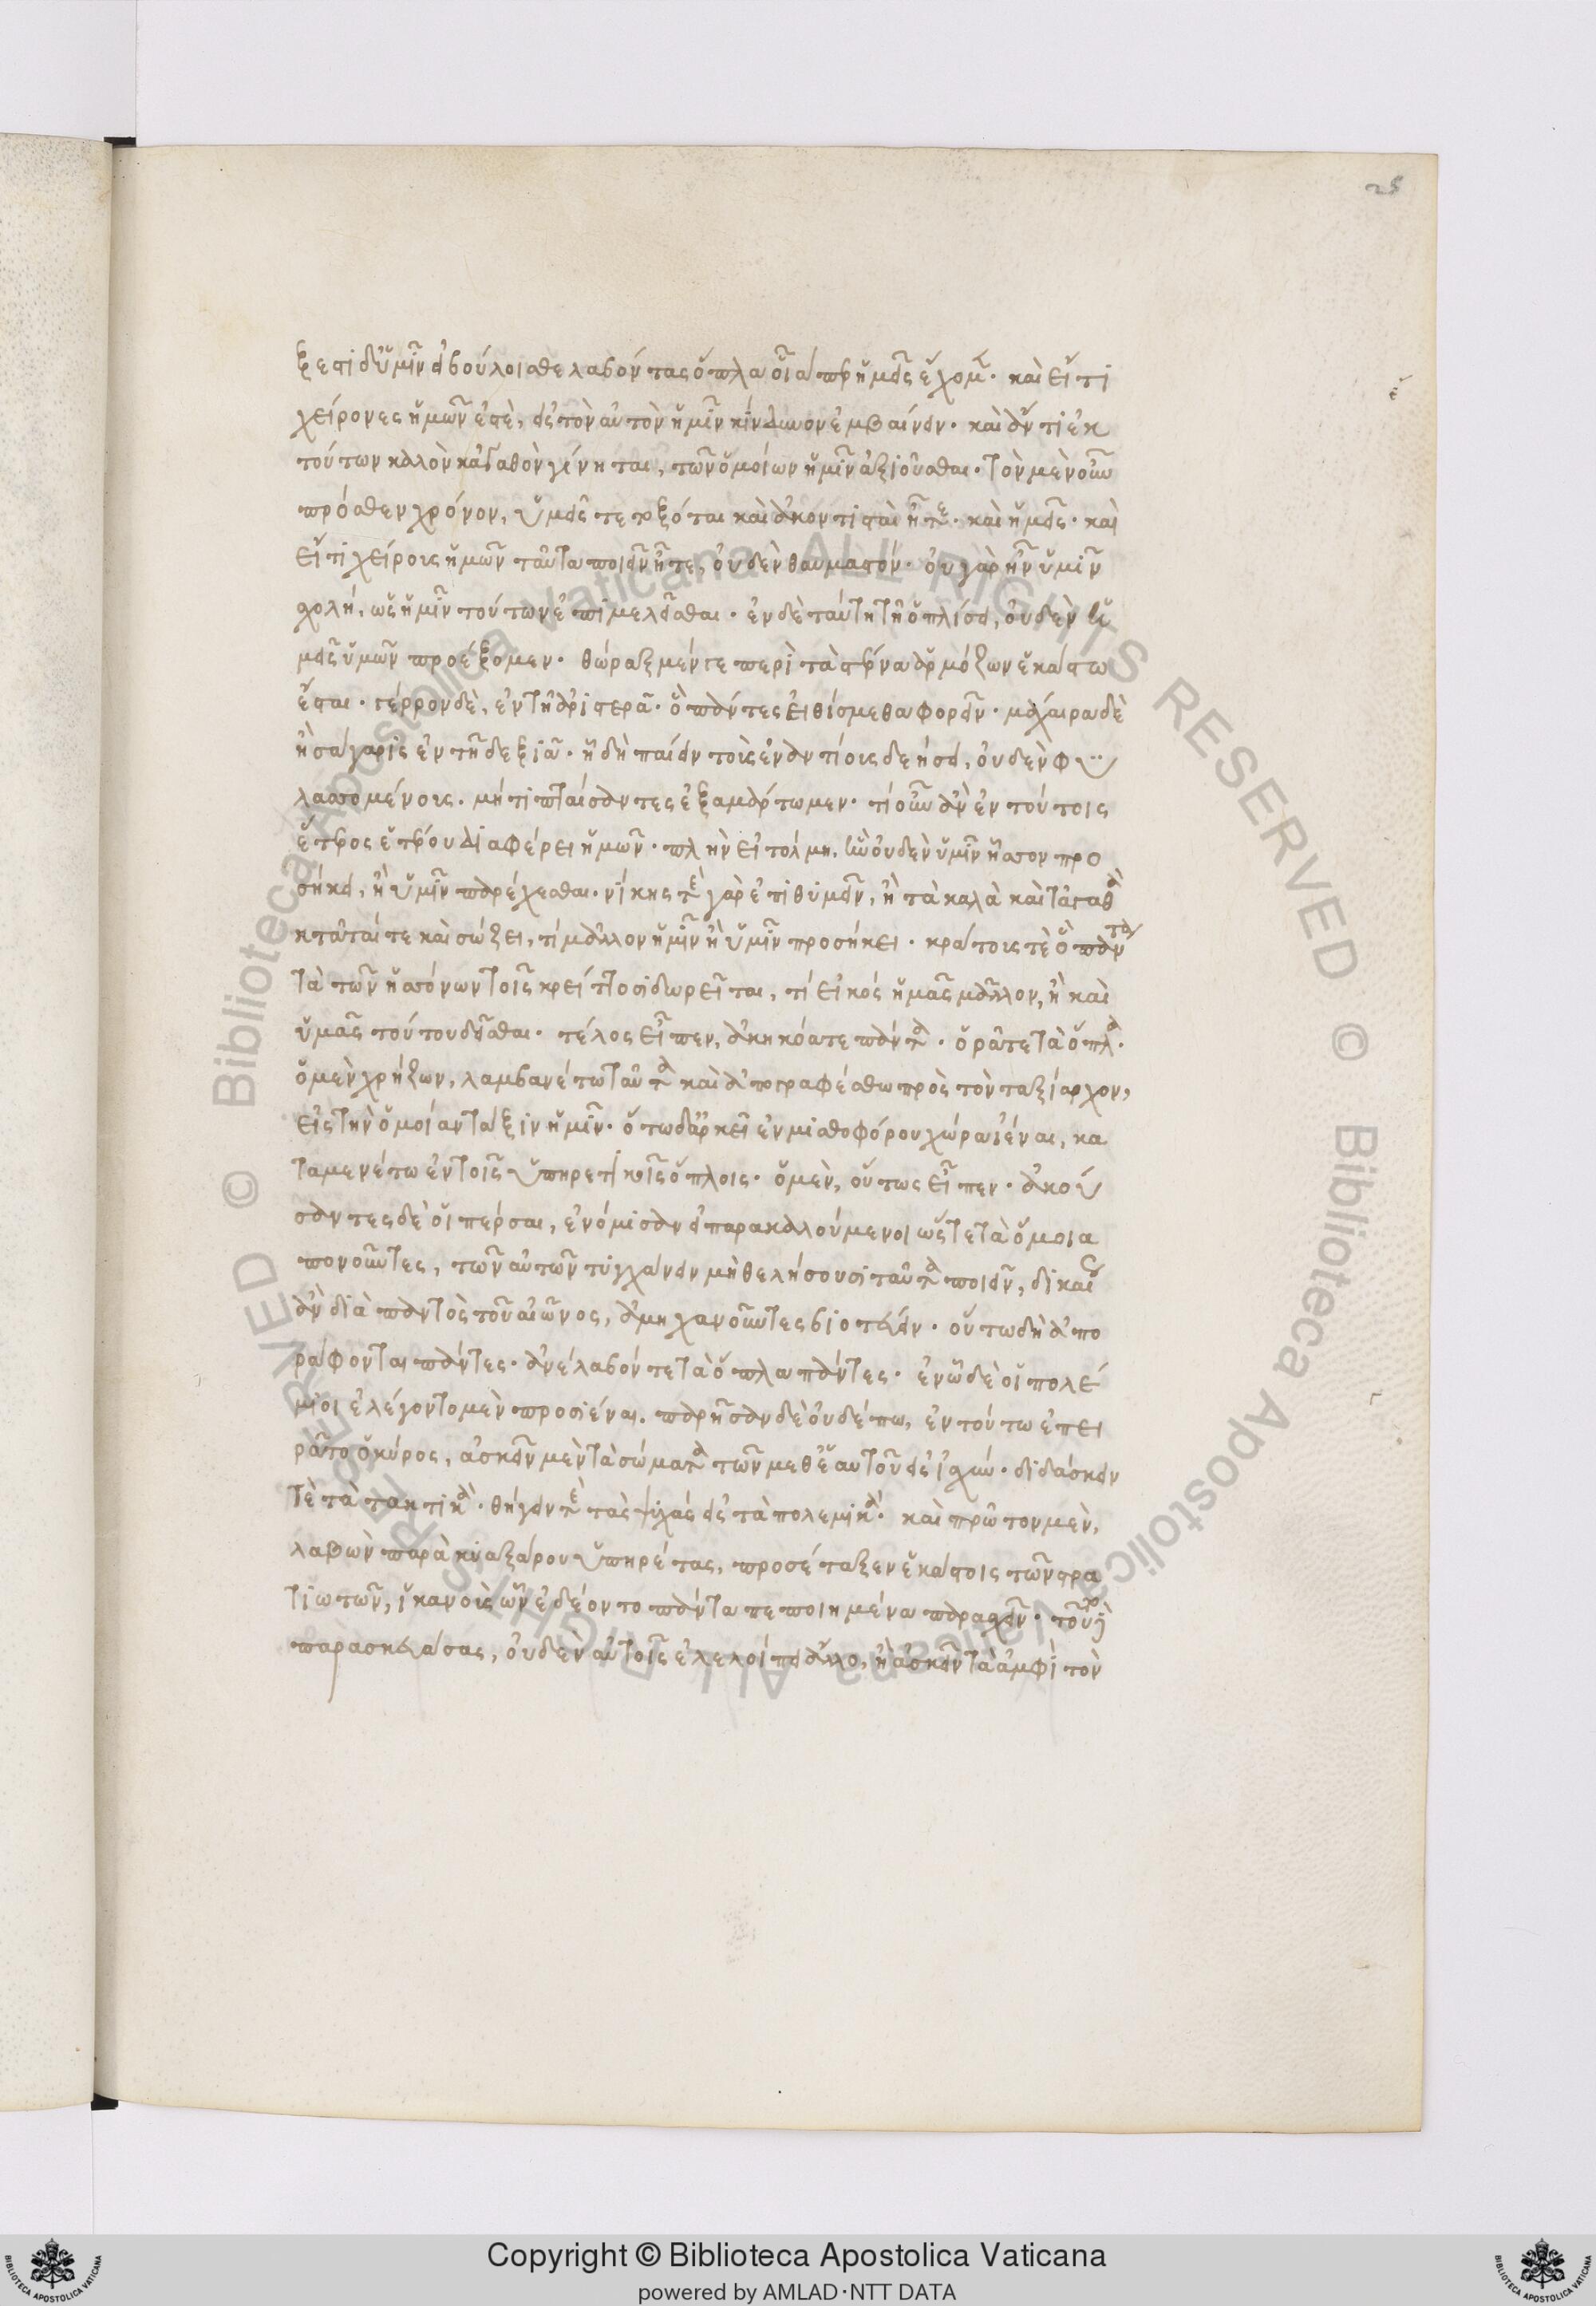 25
ξεστι δ' ὑμῖν εἰ βούλοισθε λαβόντας ὅπλα οἷάπερ ἡμεῖς ἔχομεν. καὶ εἴ τι
χείρονες ἡμῶν ἐστὲ, εἰς τὸν αὐτὸν ἡμῖν κίνδυνον ἐμβαίνειν. καὶ ἄν τι ἐκ
τούτων καλὸν κἀγαθὸν γίνηται, τῶν ὁμοίων ἡμῖν ἀξιοῦσθαι. τὸν μὲν οὖν
πρόσθεν χρόνον, ὑμεῖς τε τοξόται καὶ ἀκοντισταὶ ἦτε. καὶ ἡμεῖς. καὶ
εἴ τι χείρους ἡμῶν ταῦτα ποιεῖν ἦτε, οὐδὲν θαυμαστόν. οὐ γὰρ ἦν ὑμῖν
σχολή, ὡς ἡμῖν τούτων ἐπιμελεῖσθαι. ἐν δὲ ταύτη τῆ ὁπλίσει, οὐδὲν ἡ
μεῖς ὑμῶν προέξομεν. θώραξ μέν γε περὶ τὰ στέρνα ἁρμόζων ἑκάστω
ἔσται. γέρρον δὲ, ἐν τῆ ἀριστερᾶ. ὃ πάντες εἰθίσμεθα φορεῖν. μάχαιρα δὲ
ἢ σάγαρις ἐν τῆ δεξιᾶ. ᾗ δὴ παίειν τοὺς ἐναντίους δεήσει, οὐδὲν φυ
λασσομένους. μή τι παίσαντες ἐξαμάρτωμεν. τί οὖν ἂν ἐν τούτοις
ἕτερος ἑτέρου διαφέρει ἡμῶν. πλὴν εἰ τόλμη. ἣν οὐδὲν ὑμῖν ἧσσον προ
σήκει, ἢ ὑμῖν παρέχεσθαι. νίκης τε γὰρ ἐπιθυμεῖν, ἣ τὰ καλὰ καὶ τἀγαθὰ
κτᾶταί τε καὶ σώζει, τί μᾶλλον ἡμῖν ἢ ὑμῖν προσήκει. κράτους τὲ ὃ πάντα
τὰ τῶν ἡσσόνων τοῖς κρείττοσι δωρεῖται, τί εἰκός ἡμᾶς μᾶλλον, ἢ καὶ
ὑμᾶς τούτου δεῖσθαι. τέλος εἶπεν, ἀκηκόατε πάντα. ὁρᾶτε τὰ ὅπλα.
ὁ μὲν χρήζων, λαμβανέτω ταῦτα καὶ ἀπογραφέσθω πρὸς τὸν ταξίαρχον,
εἰς τὴν ὁμοίαν τάξιν ἡμῖν. ὅτω δ' ἀρκεῖ ἐν μισθοφόρου χώρα ἰέναι, κα
ταμενέτω ἐν τοῖς ὑπηρετικοῖς ὅπλοις. ὁ μὲν, οὕτως εἶπεν. ἀκού
σαντες δὲ οἱ πέρσαι, ἐνόμισαν εἰ παρακαλούμενοι ὥστε τὰ ὅμοια
πονοῦντες, τῶν αὐτῶν τυγχάνειν μὴ θελήσουσι ταῦτα ποιεῖν, δικαίως
ἂν διὰ παντὸς τοῦ αἰῶνος, ἀμηχανοῦντες βιοτεύειν. οὕτω δὴ ἀπο
ράφονται πάντες. ἀνέλαβόν τε τὰ ὅπλα πάντες. ἐν ὧ δὲ οἱ πολέ
μιοι ἐλέγοντο μὲν προσιέναι. παρῆσαν δὲ οὐδέπω, ἐν τούτω ἐπει
ρᾶτο ὁ κύρος, ἀσκεῖν μὲν τὰ σώματα τῶν μεθ' ἑαυτοῦ εἰς ἰσχύν. διδάσκειν
τὲ τὰ τακτικὰ. θήγειν τὲ τὰς ψυχάς εἰς τὰ πολεμικά. καὶ πρῶτον μὲν,
λαβὼν παρὰ κυαξάρου ὑπηρέτας, προσέταξεν ἑκάστοις τῶν στρα
τιωτῶν, ἱκανοὺς ὧν ἐδέοντο πάντα πεποιημένα παρασχεῖν. τοῦτο δὲ
παρασκευάσας, οὐδὲν αὐτοῖς ἐλελοίπει ἄλλο, ἢ ἀσκεῖν τὰ ἀμφὶ τὸν
Copyright © Biblioteca Apostolica Vaticana
powered by AMLAD·NTT DATA